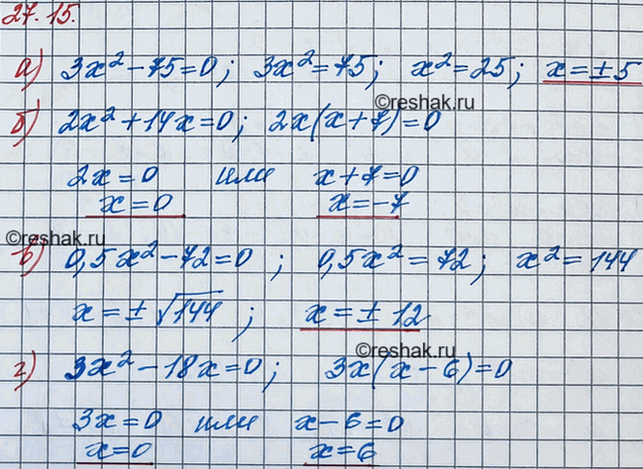 27.15.
а) 3x²-75=0; 3x²=75; x²=25; x=±5
©reshak.ru
б) 2x²+14x=0; 2x(x+7)=0
2x=0 или x+7=0
x=0 x=-7
©reshak.ru
в) 0,5x²-72=0; 0,5x²=72; x²=144
x=±√144; x=±12
©reshak.ru
г) 3x²-18x=0; 3x(x-6)=0
3x=0 или x-6=0
x=0 x=6